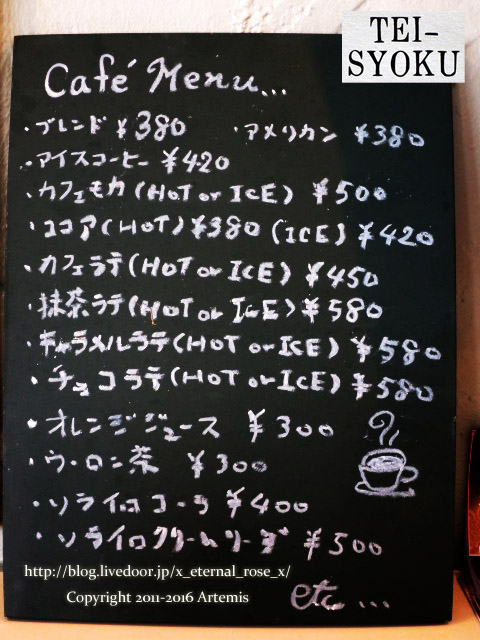 TEI-
SYOKU
Café Menu...
・ブレンド ¥380 ・アメリカン ¥380
・アイスコーヒー ¥420
・カフェモカ(HOT or ICE) ¥500
・ココア(HOT)¥380 (ICE) ¥420
・カフェラテ(HOT or ICE) ¥450
・抹茶ラテ(HOT or ICE) ¥580
・キャラメルラテ(HOT or ICE) ¥580
・チョコラテ(HOT or ICE) ¥580
・オレンジジュース ¥300
・ウーロン茶 ¥300
・ソライロコーラ ¥400
・ソライロクリームソーダ ¥500
http://blog.livedoor.jp/x_eternal_rose_x/
Copyright 2011-2016 Artemis
etc...